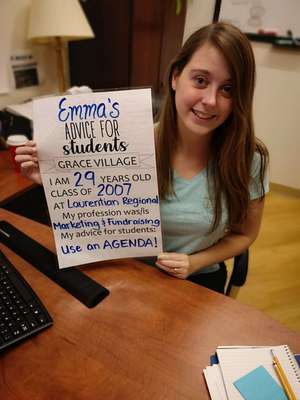 Emma's
ADVICE FOR
students
GRACE VILLAGE
I AM 29 YEARS OLD
CLASS OF 2007
AT Laurentian Regional
My profession was/is
Marketing & Fundraising
My advice for students:
Use an AGENDA!